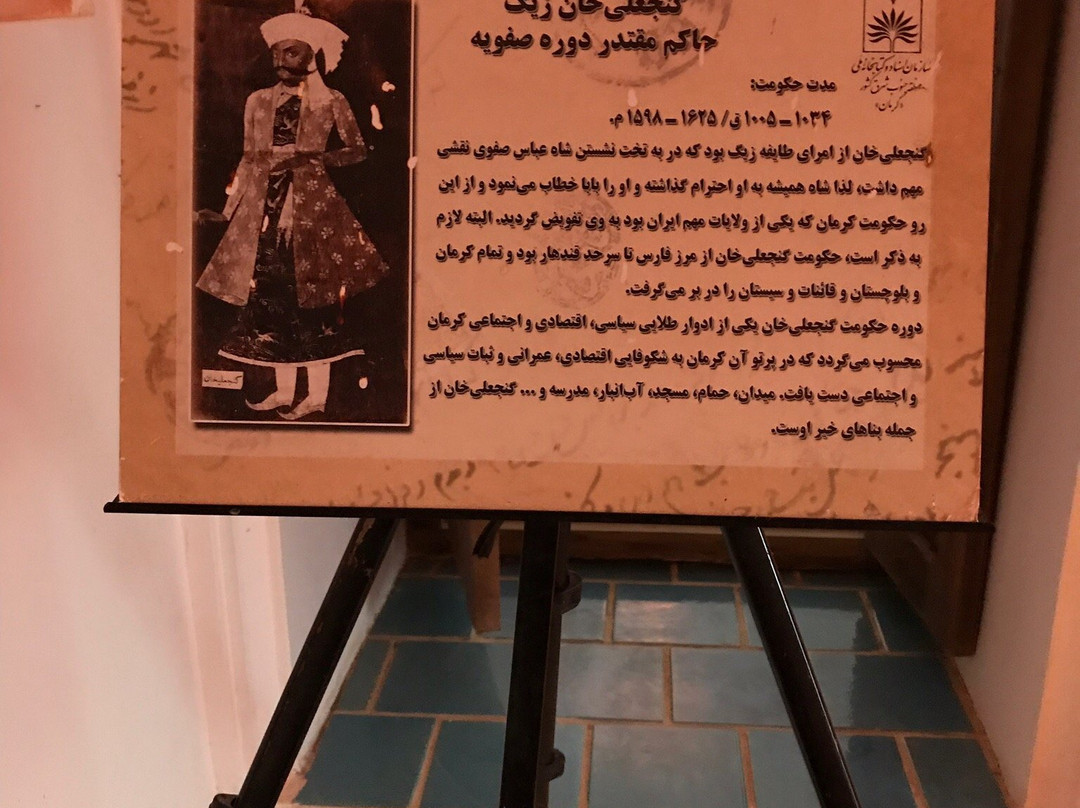 گنجعلی‌خان زیک
حاکم مقتدر دوره صفویه
سازمان اسناد و کتابخانه ملی
منطقه جنوب شرق کشور
«کرمان»
مدت حکومت:
۱۰۳۴ ــ ۱۰۰۵ ق/ ۱۶۲۵ ــ ۱۵۹۸ م.
گنجعلی‌خان از امرای طایفه زیگ بود که در به تخت نشستن شاه عباس صفوی نقشی
مهم داشت، لذا شاه همیشه به او احترام گذاشته و او را بابا خطاب می‌نمود و از این
رو حکومت کرمان که یکی از ولایات مهم ایران بود به وی تفویض گردید. البته لازم
به ذکر است، حکومت گنجعلی‌خان از مرز فارس تا سرحد قندهار بود و تمام کرمان
و بلوچستان و قائنات و سیستان را در بر می‌گرفت.
دوره حکومت گنجعلی‌خان یکی از ادوار طلایی سیاسی، اقتصادی و اجتماعی کرمان
محسوب می‌گردد که در پرتو آن کرمان به شکوفایی اقتصادی، عمرانی و ثبات سیاسی
و اجتماعی دست یافت. میدان، حمام، مسجد، آب‌انبار، مدرسه و ... گنجعلی‌خان از
جمله بناهای خیر اوست.
گنجعلیخان